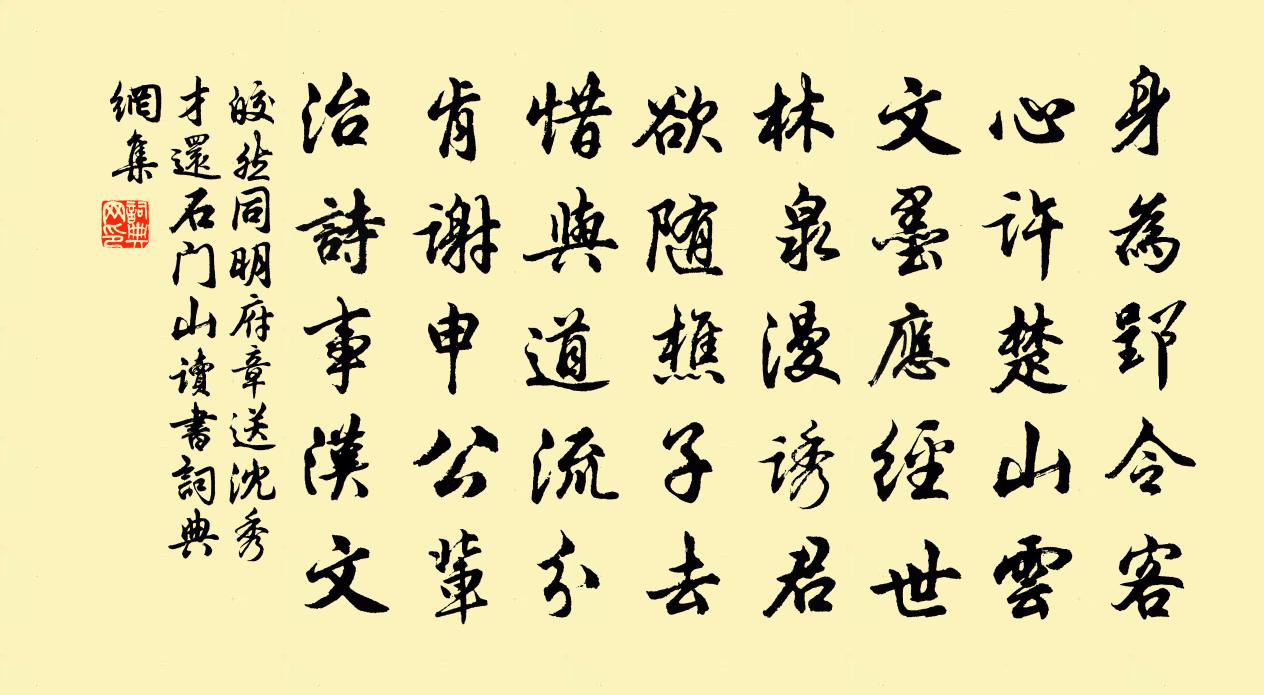 身為郢令客
心許楚山雲
文墨應經世
林泉漫誘君
欲随樵子去
惜與道流分
肯謝申公輩
治詩事漢文
皎然同明府章送沈秀
才還石门山讀書詞典
網集
詞典網印